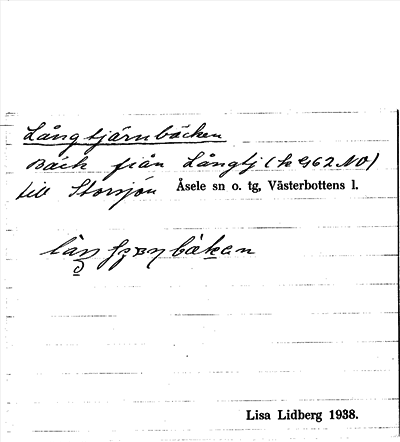 Långtjärnbäcken
Bäck från Långtj (k G62 NO)
till Storsjön Åsele sn o. tg, Västerbottens l.
Lisa Lidberg 1938.